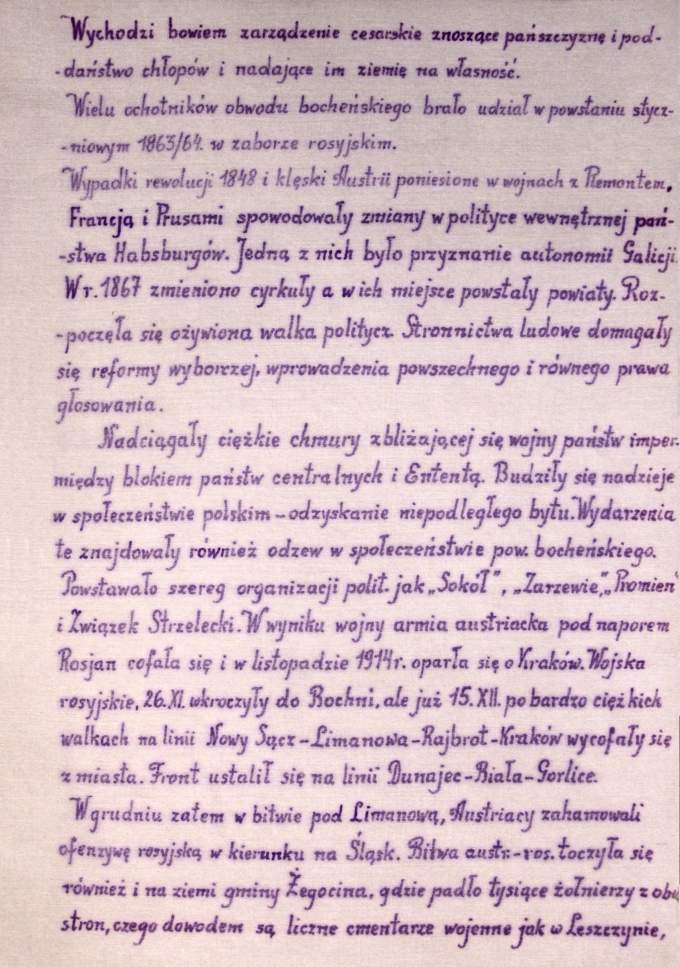 Wychodzi bowiem zarządzenie cesarskie znoszące pańszczyznę i pod-
-daństwo chłopów i nadające im ziemię na własność.
Wielu ochotników obwodu bocheńskiego brało udział w powstaniu stycz-
-niowym 1863/64. w zaborze rosyjskim.
Wypadki rewolucji 1848 i klęski Austrii poniesione w wojnach z Piemontem,
Francją i Prusami spowodowały zmiany w polityce wewnętrznej pań-
-stwa Habsburgów. Jedną z nich było przyznanie autonomii Galicji.
W r. 1867 zmieniono cyrkuły a w ich miejsce powstały powiaty. Roz-
-poczęła się ożywiona walka politycz. Stronnictwa ludowe domagały
się reformy wyborczej, wprowadzenia powszechnego i równego prawa
głosowania.
Nadciągały ciężkie chmury zbliżającej się wojny państw imper.
między blokiem państw centralnych i Ententą. Budziły się nadzieje
w społeczeństwie polskim - odzyskanie niepodległego bytu. Wydarzenia
te znajdowały również odzew w społeczeństwie pow. bocheńskiego.
Powstawało szereg organizacji polit. jak „Sokół", „Zarzewie", „Promień"
i Związek Strzelecki. W wyniku wojny armia austriacka pod naporem
Rosjan cofała się i w listopadzie 1914r. oparła się o Kraków. Wojska
rosyjskie, 26.XI. wkroczyły do Bochni, ale już 15.XII. po bardzo ciężkich
walkach na linii Nowy Sącz-Limanowa-Rajbrot-Kraków wycofały się
z miasta. Front ustalił się na linii Dunajec-Biała-Gorlice.
W grudniu zatem w bitwie pod Limanową, Austriacy zahamowali
ofenzywę rosyjską w kierunku na Śląsk. Bitwa austr.-ros. toczyła się
również i na ziemi gminy Żegocina, gdzie padło tysiące żołnierzy z obu
stron, czego dowodem są liczne cmentarze wojenne jak w Leszczynie,